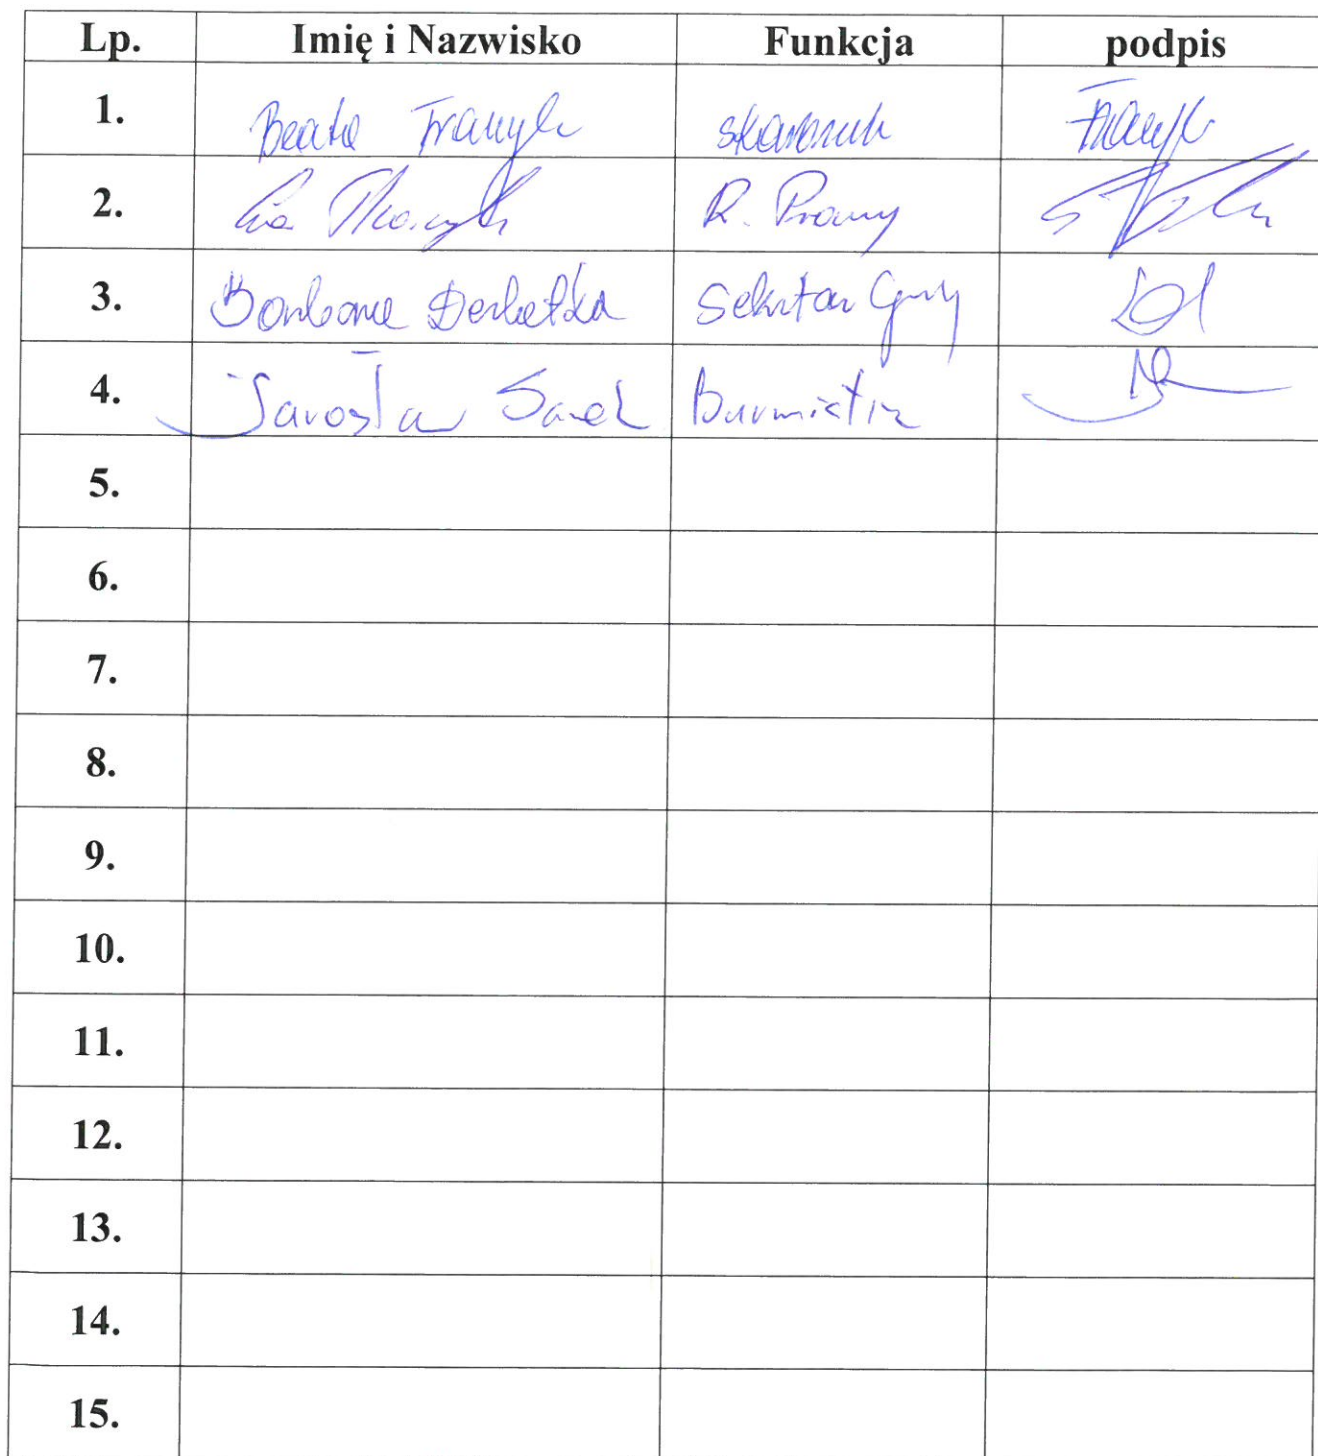 Lp. Imię i Nazwisko Funkcja podpis
1. Beata skarbnik
2. Ewa Tkaczyk R. Prawny
3. Barbara Derbetka Sekretarz Gminy
4. Jarosław Samek Burmistrz
5.
6.
7.
8.
9.
10.
11.
12.
13.
14.
15.